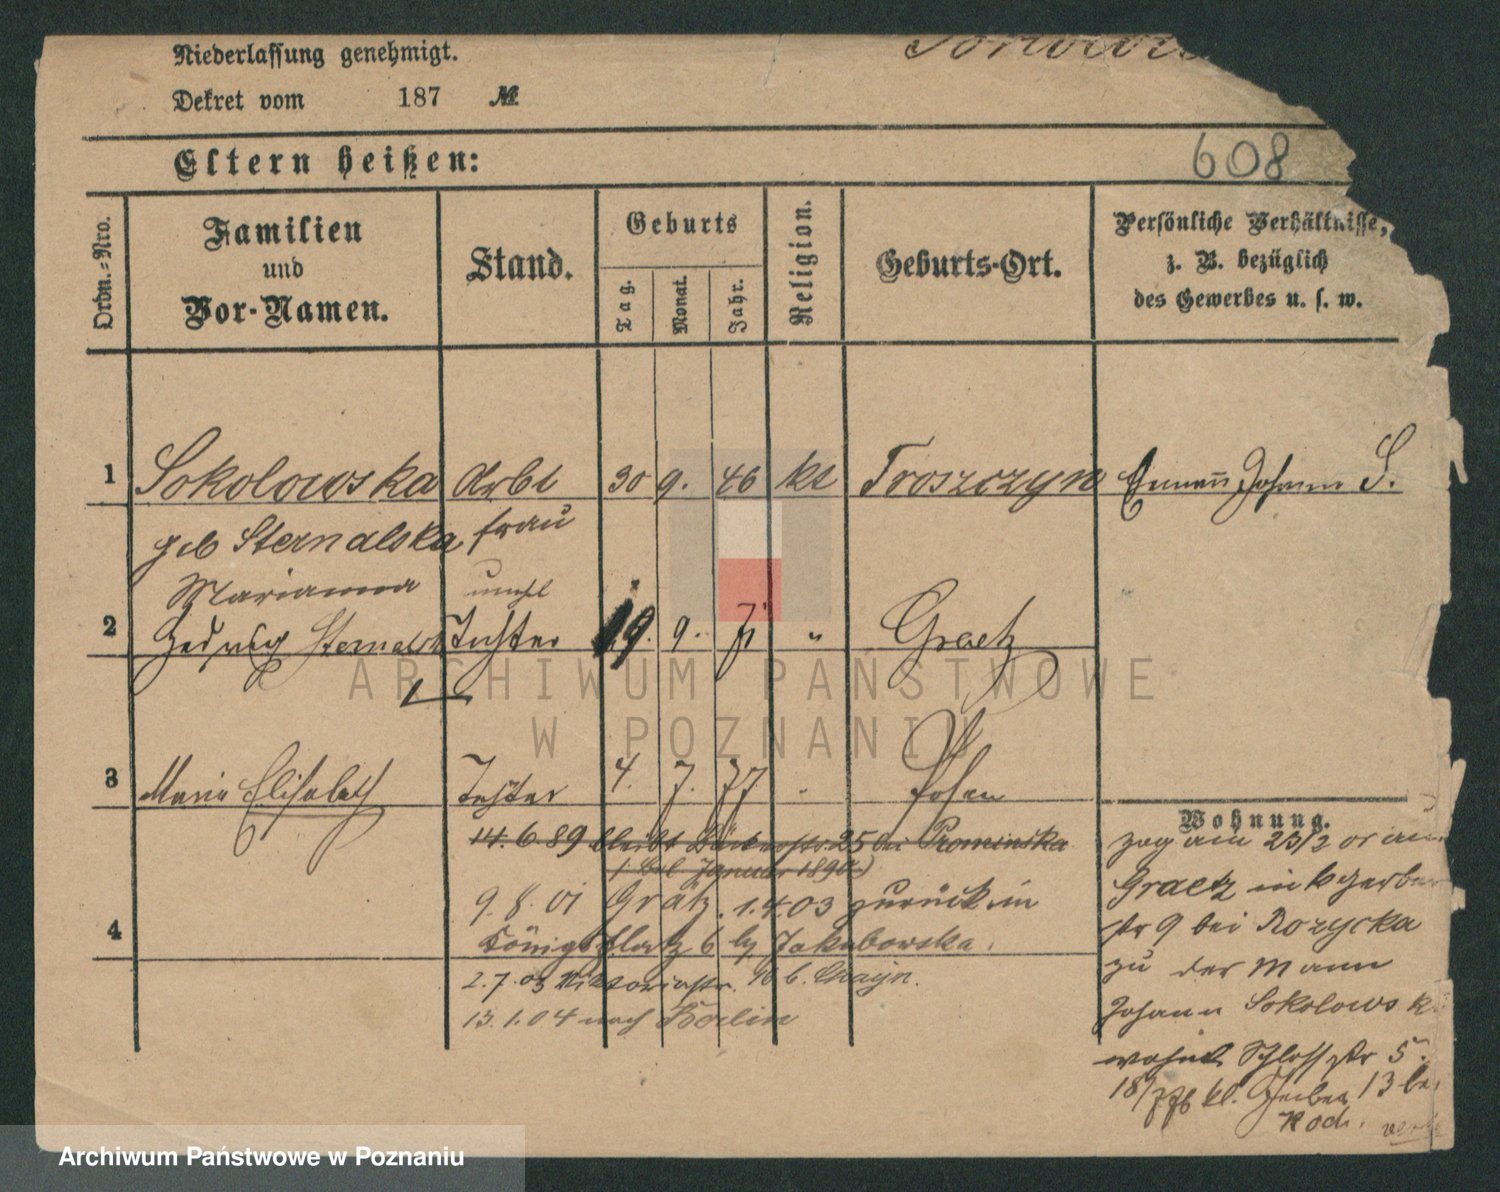 Niederlassung genehmigt.
Dekret vom 187 №
608
Eltern heißen:
Ordn.-Nro.
Familien
und
Vor-Namen.
Stand.
Geburts
Tag.
Monat.
Jahr.
Religion.
Geburts-Ort.
Persönliche Verhältnisse,
z. B. bezüglich
des Gewerbes u. s. w.
1 Sokolowska Arbt 30 9. 46 kt Troszczyn Johann S.
geb Sternalska frau
Marianna unehl
2 Hedwig Sternalsk Tochter 19. 9. 71 " Graetz
3 Marie Elisabeth Tochter 4. 7. 77 " Posen
14.6.89 bleibt 25 bei Prominska
Januar 1890)
9.8.01 Grätz. 1.4.03 zurück in
4 Königsplatz 6 bei Jakubowska.
2.7.03 Viktoriastr. 16 b.
13.1.04 nach Berlin
Wohnung.
zog am 23/3 or aus
Graetz in k Gerber
str 9 bei Rozycka
zu der Mann
Johann Sokolowsk
wohnt Schlossstr 5.
18/7 76 kl. Gerber 13 bei
Koch.
ARCHIWUM PAŃSTWOWE
W POZNANIU
Archiwum Państwowe w Poznaniu